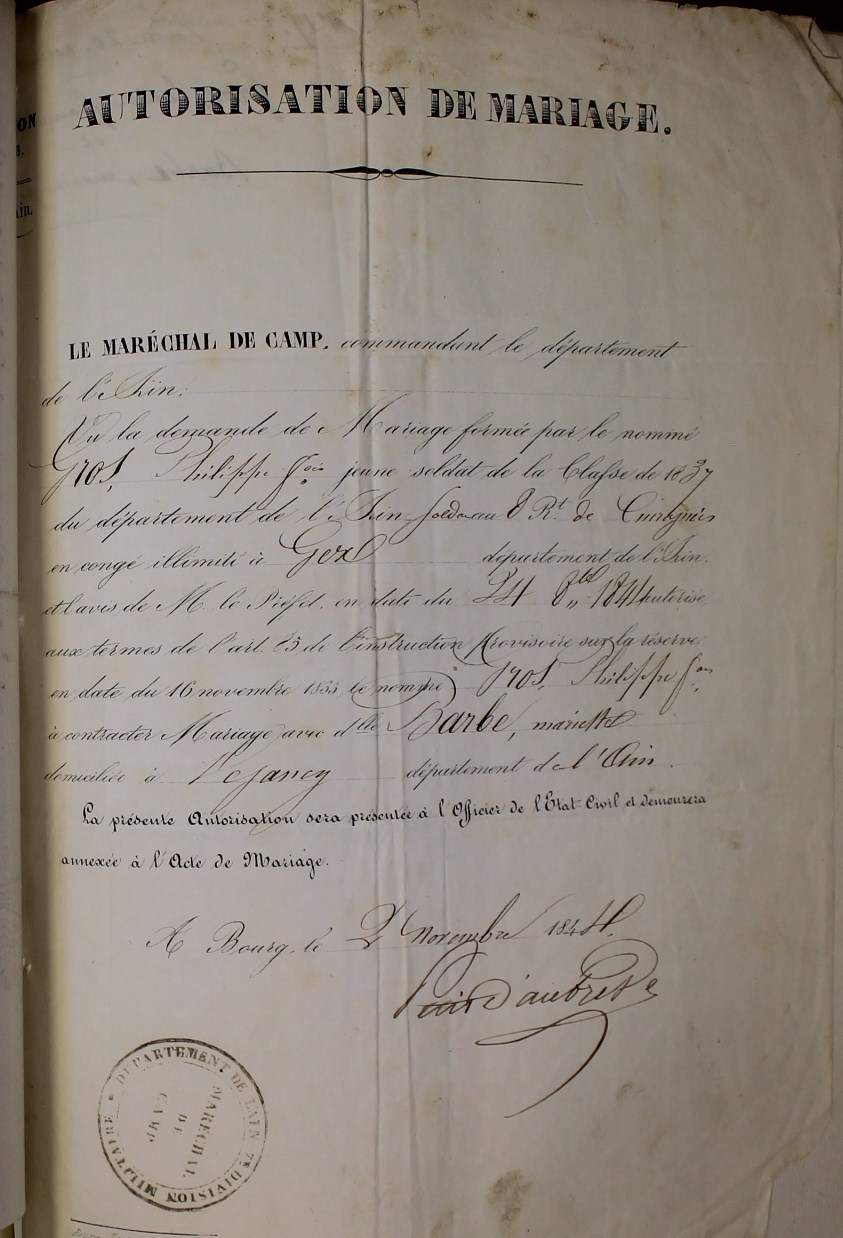 AUTORISATION DE MARIAGE.
ON
ain.
LE MARÉCHAL DE CAMP, commandant le département
de l'Ain;
Vu la demande de Mariage formée par le nommé
Gros, Philippe fois jeune soldat de la Classe de 1837
du département de l'Ain, soldat au 8 Rt. de
en congé illimité à Gex département de l'Ain.
et l'avis de M. le Préfet, en date du 24 8bre 1844 autorise,
aux termes de l'art. de l'instruction Provisoire sur la réserve
en date du 16 novembre 1833 le nommé Gros, Philippe fois
à contracter Mariage avec dlle Barbe, mariette
domiciliée à Vesancy département de l'Ain.
La présente Autorisation sera présentée à l'Officier de l'Etat-Civil et demeurera
annexée à l'Acte de Mariage.
A Bourg, le 2 novembre 1844.
DÉPARTEMENT DE L'AIN 7e DIVISION MILITAIRE
MARÉCHAL
DE
CAMP